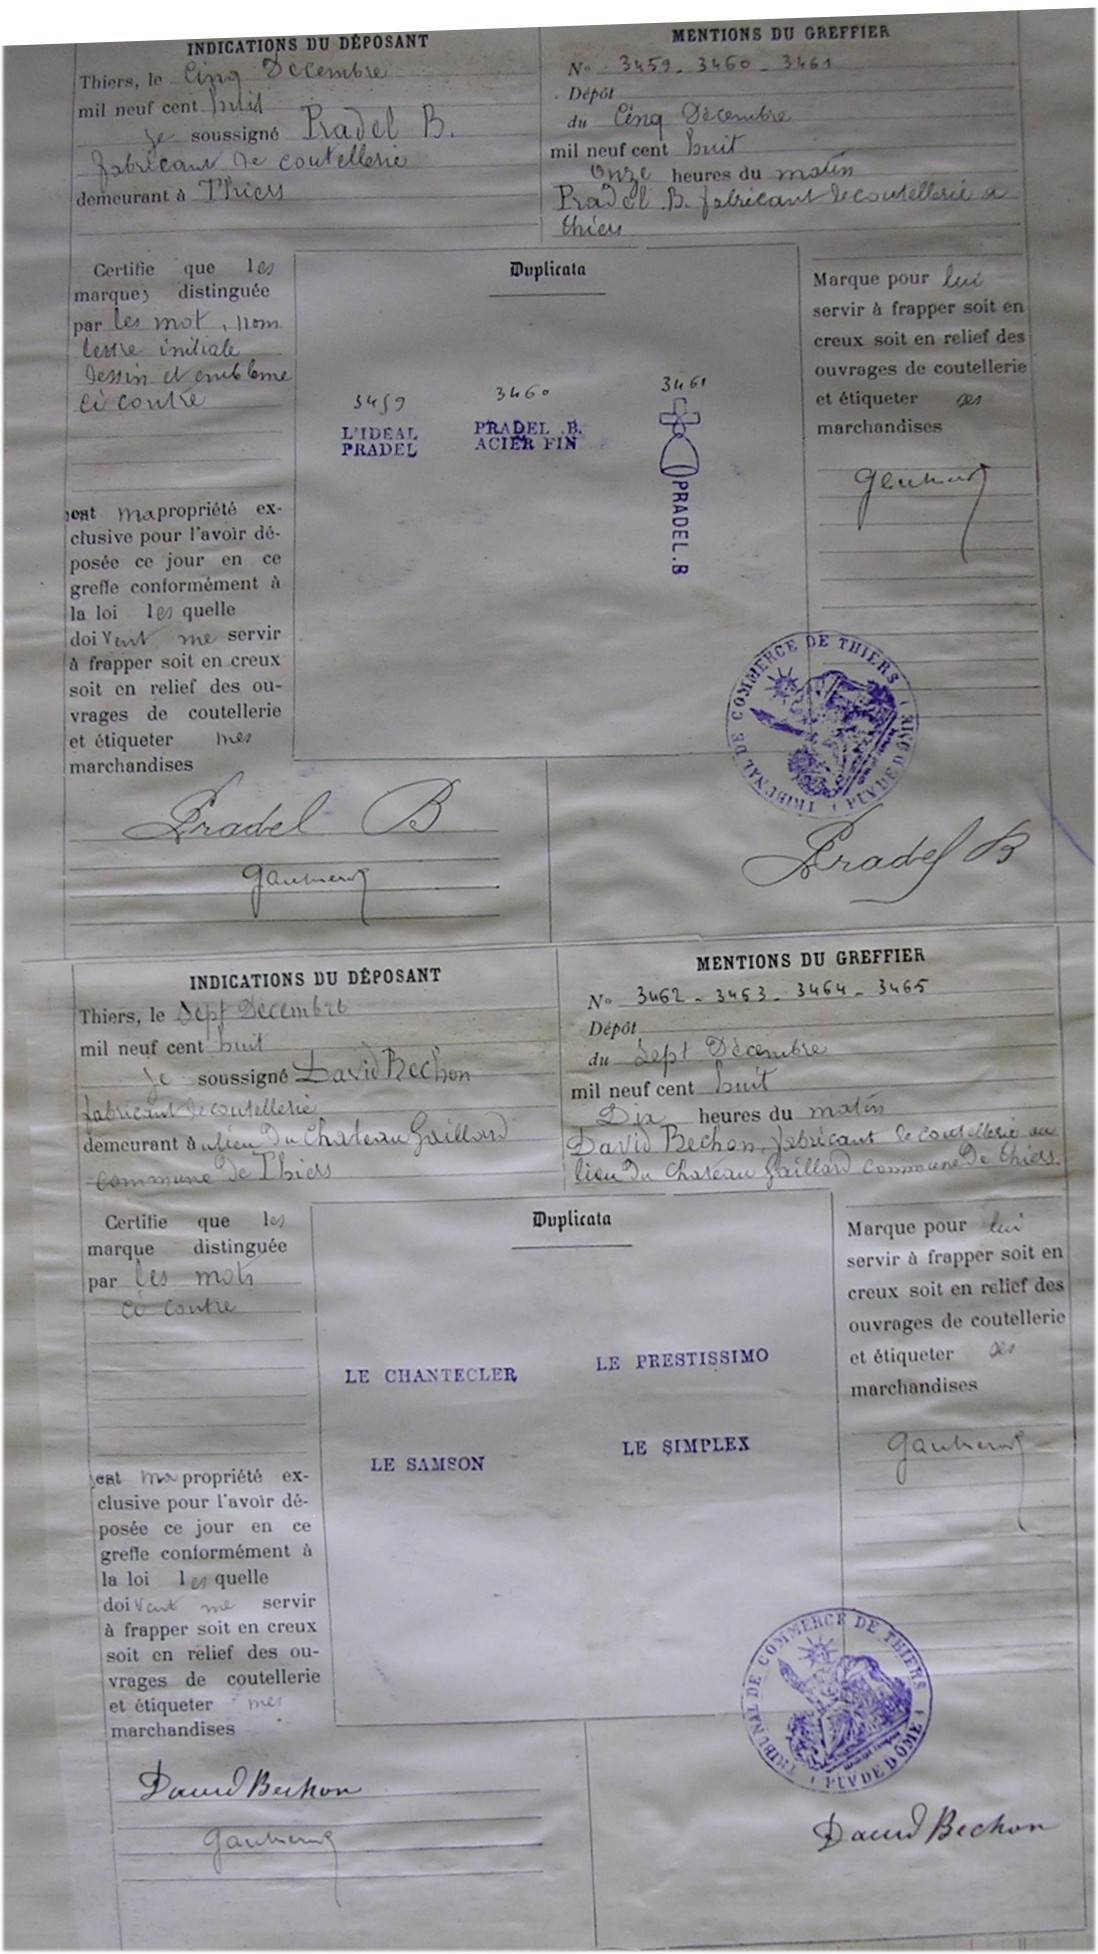 INDICATIONS DU DÉPOSANT
Thiers, le Cinq Décembre
mil neuf cent huit
je soussigné Pradel B.
fabricant de coutellerie
demeurant à Thiers
MENTIONS DU GREFFIER
No 3459 - 3460 - 3461
Dépôt
du Cinq Décembre
mil neuf cent huit
Onze heures du matin
Pradel B. fabricant de coutellerie a
thiers
Certifie que les
marques distinguée
par les mot, nom
lettre initiale
dessin et embleme
ci contre
est ma propriété ex-
clusive pour l'avoir dé-
posée ce jour en ce
greffe conformément à
la loi les quelle
doivent me servir
à frapper soit en creux
soit en relief des ou-
vrages de coutellerie
et étiqueter mes
marchandises
Duplicata
3459
L'IDEAL
PRADEL
3460
PRADEL .B.
ACIER FIN
3461
PRADEL.B
Marque pour lui
servir à frapper soit en
creux soit en relief des
ouvrages de coutellerie
et étiqueter ses
marchandises
TRIBUNAL DE COMMERCE DE THIERS
(PUY DE DÔME)
Pradel B
Pradel B
INDICATIONS DU DÉPOSANT
Thiers, le Sept Décembre
mil neuf cent huit
je soussigné David Bechon
fabricant de coutellerie
demeurant à u lieu Du Chateau Gaillard
commune de Thiers
MENTIONS DU GREFFIER
No 3462 - 3463 - 3464 - 3465
Dépôt
du Sept Décembre
mil neuf cent huit
Dix heures du matin
David Bechon, fabricant de coutellerie au
lieu Du Chateau Gaillard commune De thiers
Certifie que les
marque distinguée
par les mots
ci contre
est ma propriété ex-
clusive pour l'avoir dé-
posée ce jour en ce
greffe conformément à
la loi les quelle
doivent me servir
à frapper soit en creux
soit en relief des ou-
vrages de coutellerie
et étiqueter mes
marchandises
Duplicata
LE CHANTECLER
LE PRESTISSIMO
LE SAMSON
LE SIMPLEX
Marque pour lui
servir à frapper soit en
creux soit en relief des
ouvrages de coutellerie
et étiqueter ses
marchandises
TRIBUNAL DE COMMERCE DE THIERS
(PUY DE DÔME)
David Bechon
David Bechon